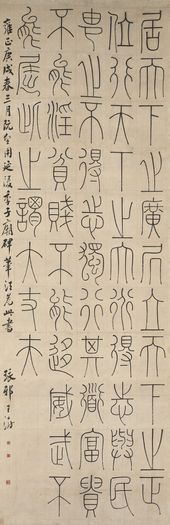 居天下之廣居立天下之正
位行天下之大道得志與民
由之不得志獨行其道富貴
不能淫貧賤不能移威武不
能屈此之謂大丈夫
雍正庚戌春三月既望用延陵季子廟碑筆法為此書 琅邪王澍